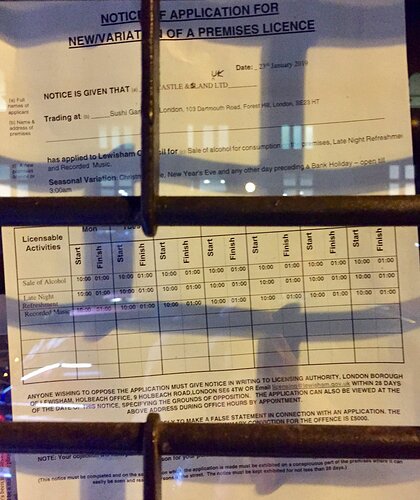 NOTICE OF APPLICATION FOR
NEW/VARIATION OF A PREMISES LICENCE
Date: 23rd January 2019
UK
NOTICE IS GIVEN THAT CASTLE & LAND LTD
(a) Full names of applicant
Trading at (b) Sushi London, 103 Dartmouth Road, Forest Hill, London, SE23 HT
(b) Name & address of premises
has applied to Lewisham for Sale of alcohol for consumption premises, Late Night Refreshmen
and Recorded Music.
Seasonal Variation: New Year's Eve and any other day preceding a Bank Holiday – open till
3:00am
Licensable Activities
Mon
Start Finish Start Finish Start Finish Start Finish Start Finish Start Finish Start Finish
Sale of Alcohol 10:00 01:00 10:00 01:00 10:00 01:00 10:00 01:00 10:00 01:00 10:00 01:00 10:00 01:00
Late Night Refreshment 10:00 01:00 10:00 01:00 10:00 01:00 10:00 01:00 10:00 01:00 10:00 01:00 10:00 01:00
Recorded Music 10:00 01:00 10:00 01:00 10:00 01:00 10:00 01:00 10:00 01:00 10:00 01:00 10:00 01:00
ANYONE WISHING TO OPPOSE THE APPLICATION MUST GIVE NOTICE IN WRITING TO LICENSING AUTHORITY, LONDON BOROUGH
OF LEWISHAM, HOLBEACH OFFICE, 9 HOLBEACH ROAD, LONDON SE6 4TW OR Email licensing@lewisham.gov.uk WITHIN 28 DAYS
OF THE DATE OF THIS NOTICE, SPECIFYING THE GROUNDS OF OPPOSITION. THE APPLICATION CAN ALSO BE VIEWED AT THE
ABOVE ADDRESS DURING OFFICE HOURS BY APPOINTMENT.
TO MAKE A FALSE STATEMENT IN CONNECTION WITH AN APPLICATION. THE
CONVICTION FOR THE OFFENCE IS £5000.
NOTE: Your
(This notice must be completed and on the which the application is made must be exhibited on a conspicuous part of the premises where it can
easily be seen and the street. The notice must be kept exhibited for not less than 28 days.)